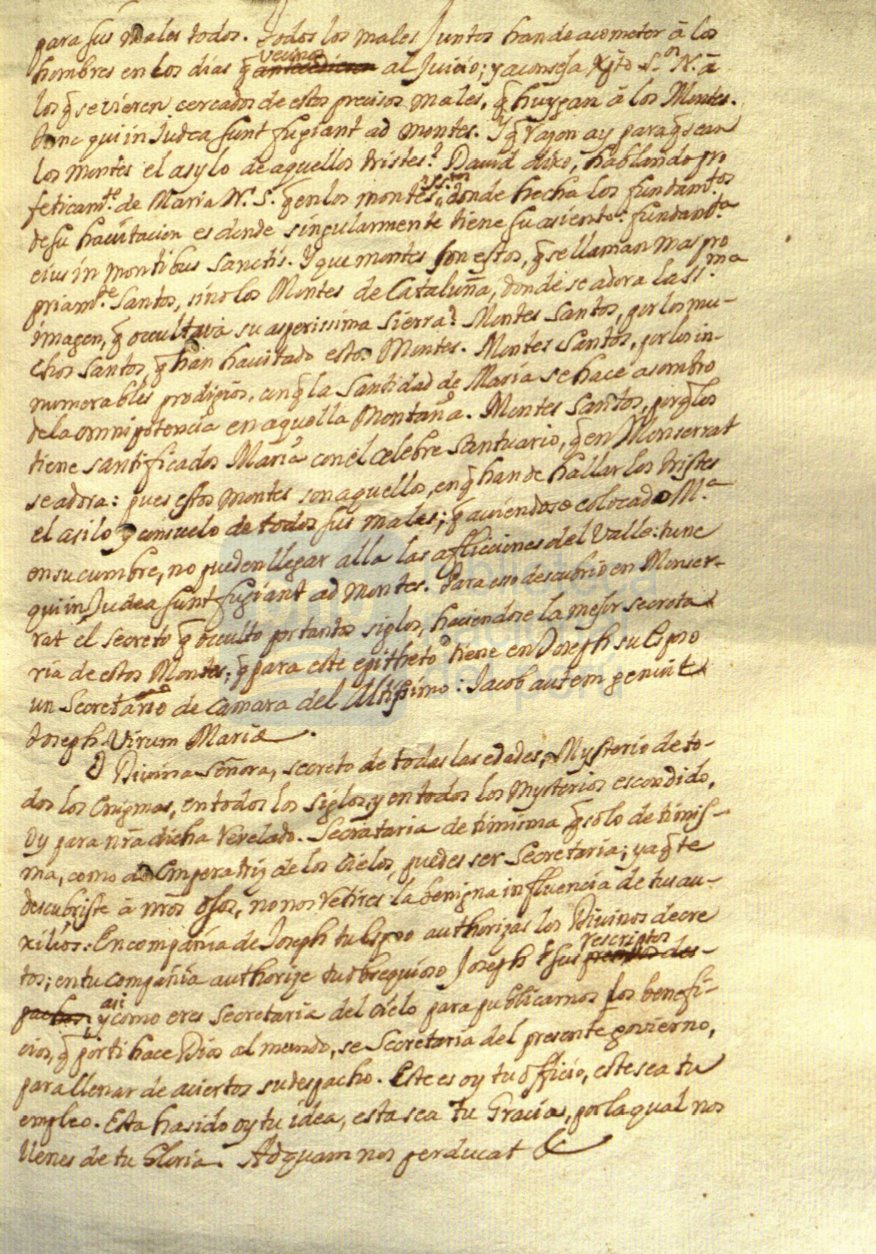 para sus males todos. Todos los males juntos han de acometer â los
hombres en los dias q̃ vecinos antecedieren al Juicio; y aconseja Xp̃to S.or N. â
los q̃ se vieren cercados de estos precisos males, q̃ huygan â los Montes.
tunc qui in Judea sunt fugiant ad montes. Y q̃ razon ay para q̃ sean
los montes el asylo de aquellos tristes? David dixo, hablando pro
feticam.te de Maria N. S. q̃ en los montes, donde hecha los fundam.tos
de su havitacion es donde singularmente tiene su asiento: fundam.ta
eius in montibus sanctis. Y que montes son estos, q̃ se llaman mas pro
priam.te Santos, sino los Montes de Cataluña, donde se adora la SS.ma
imagen, q̃ occultava su asperissima sierra? Montes Santos, por los mu-
chos Santos, q̃ han havitado estos Montes. Montes Santos, por los in-
numerables prodigios, con q̃ la Santidad de Maria se hace asombro
de la omnipotencia en aquella Montaña. Montes Santos, porq̃ los
tiene santificados Maria con el celebre Santuario, q̃ en Monserrat
se adora: pues estos Montes son aquellos, en q̃ han de hallar los tristes
el asilo y consuelo de todos sus males; q̃ aviendose colocado M.a
en su cumbre, no pueden llegar alla las aflicciones del Valle: tunc
qui in Judea sunt fugiant ad montes. Para eso descubrio en Monser-
rat el secreto q̃ occulto por tantos siglos, haciendose la mejor secreta
ria de estos Montes; q̃ para este epitheto tiene en Joseph su Espo
un Secretario de camara del Altissimo: Jacob autem genuit
Joseph Virum Mariæ.
O Divina Señora, secreto de todas las edades, Mysterio de to-
dos los Enigmas, en todos los siglos, y en todos los Mysterios escondido,
oy para nr̃a dicha revelado. Secretaria Santisima q̃ solo de timis-
ma, como de Emperatriz de los Cielos, puedes ser Secretaria; ya q̃ te
descubriste â nr̃os ojos, no nos retires la benigna influencia de tus au-
xilios: En compañia de Joseph tu Espso authorizas los Divinos decre
tos; en tu compañia authorize tu obsequioso Joseph sus rescriptos des-
pachos; y asi como eres Secretaria del cielo para publicarnos los benefi-
cios, q̃ por ti hace Dios al mundo, se Secretaria del presente govierno,
para llenar de aciertos su despacho. Este es oy tu officio, este sea tu
empleo. Esta ha sido oy tu idea, esta sea tu Gracia, por la qual nos
llenes de tu Gloria. Ad quam nos perducat &
biblioteca
nacional
del perú